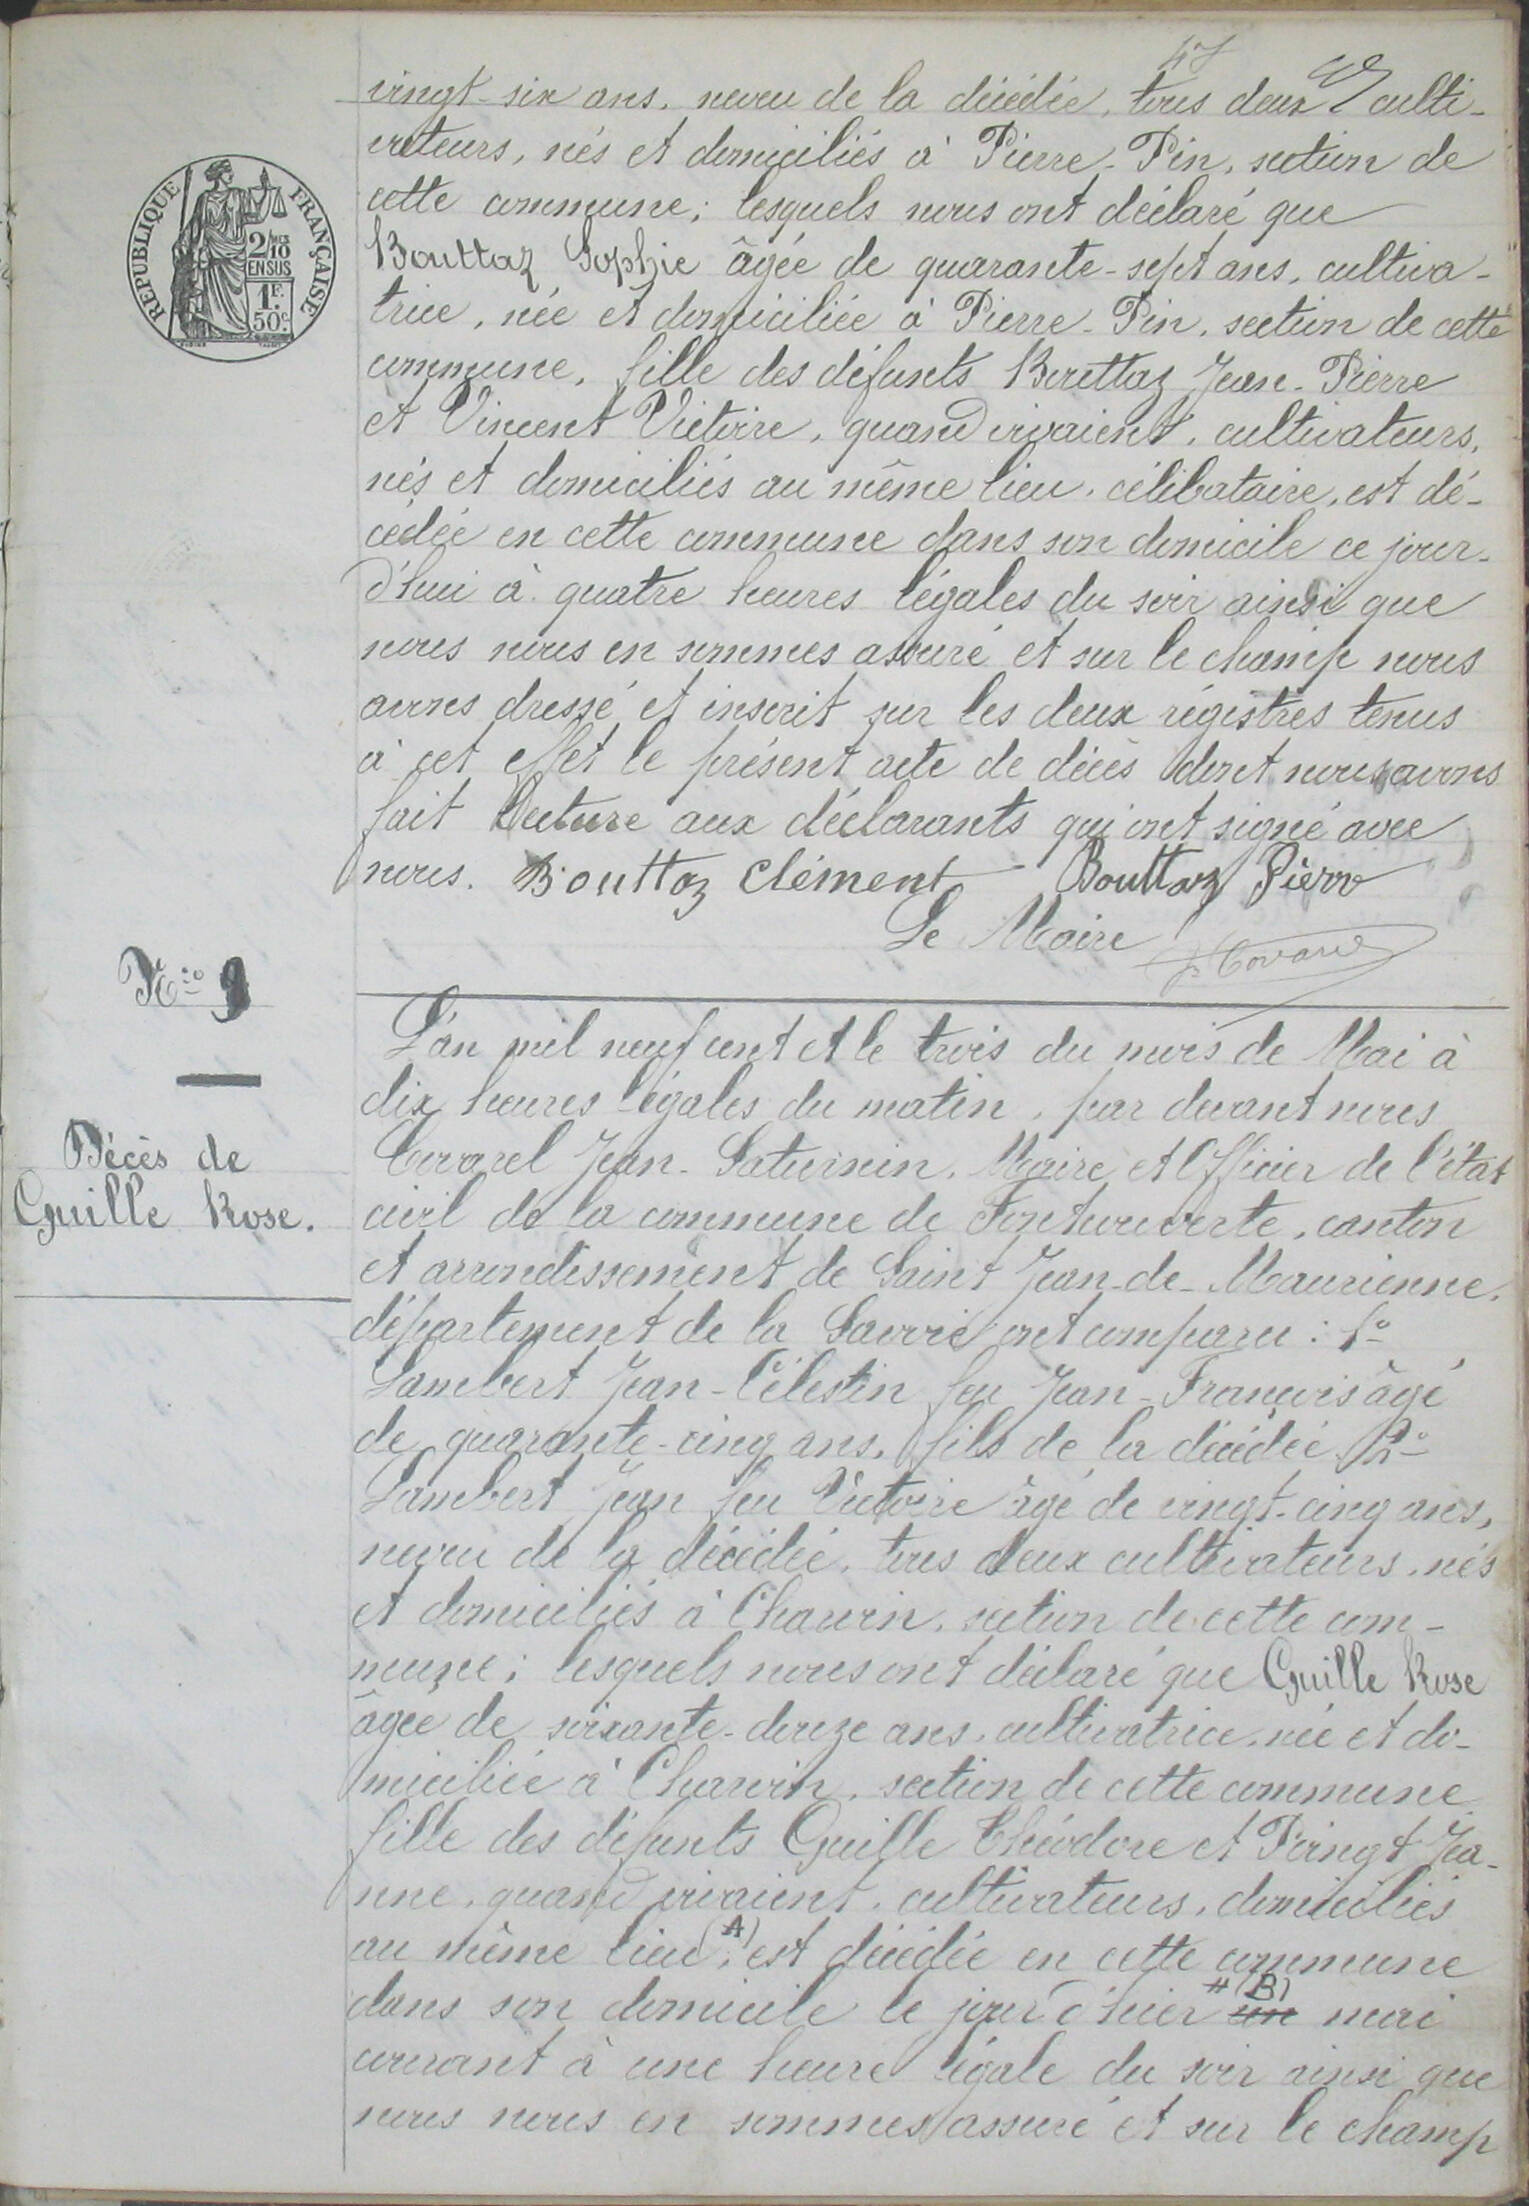 47
vingt-six ans, neveu de la décédée, tous deux culti-
vateurs, nés et domiciliés à Pierre-Pin, section de
cette commune; lesquels nous ont déclaré que
Bouttaz Sophie âgée de quarante-sept ans, cultiva-
trice, née et domiciliée à Pierre-Pin, section de cette
commune, fille des défunts Bouttaz Jean-Pierre
et Vincent Victoire, quand vivaient, cultivateurs,
nés et domiciliés au même lieu, célibataire, est dé-
cédée en cette commune dans son domicile ce jour-
d'hui à quatre heures légales du soir ainsi que
nous nous en sommes assuré et sur le champ nous
avons dressé et inscrit sur les deux régistres tenus
à cet effet le présent acte de décès dont nous avons
fait lecture aux déclarants qui ont signé avec
nous. Bouttaz Clément Bouttaz Pierre
Le Maire
REPUBLIQUE FRANÇAISE
2/10
EN SUS
1F.
50c.
Nio 9
Décès de
Guille Rose.
L'an mil neuf cent et le trois du mois de Mai à
dix heures légales du matin, par devant nous
Covarel Jean-Saturnin, Maire et Officier de l'état
civil de la commune de Fontcouverte, canton
et arrondissement de Saint Jean-de-Maurienne,
département de la Savoie ont comparu : 1o
Lambert Jean-Célestin feu Jean-François âgé
de quarante-cinq ans, fils de la décédée 2o
Lambert Jean feu Victoire âgé de vingt-cinq ans,
neveu de la décédée, tous deux cultivateurs, nés
et domiciliés à Charvin, section de cette com-
mune; lesquels nous ont déclaré que Guille Rose
âgée de soixante-douze ans, cultivatrice, née et do-
miciliée à Charvin, section de cette commune
fille des défunts Guille Théodore et Pringt Jea-
nne, quand vivaient, cultivateurs, domiciliés
au même lieu (A), est décédée en cette commune
dans son domicile le jour d'hier #(B) un mai
courant à une heure légale du soir ainsi que
nous nous en sommes assuré et sur le champ